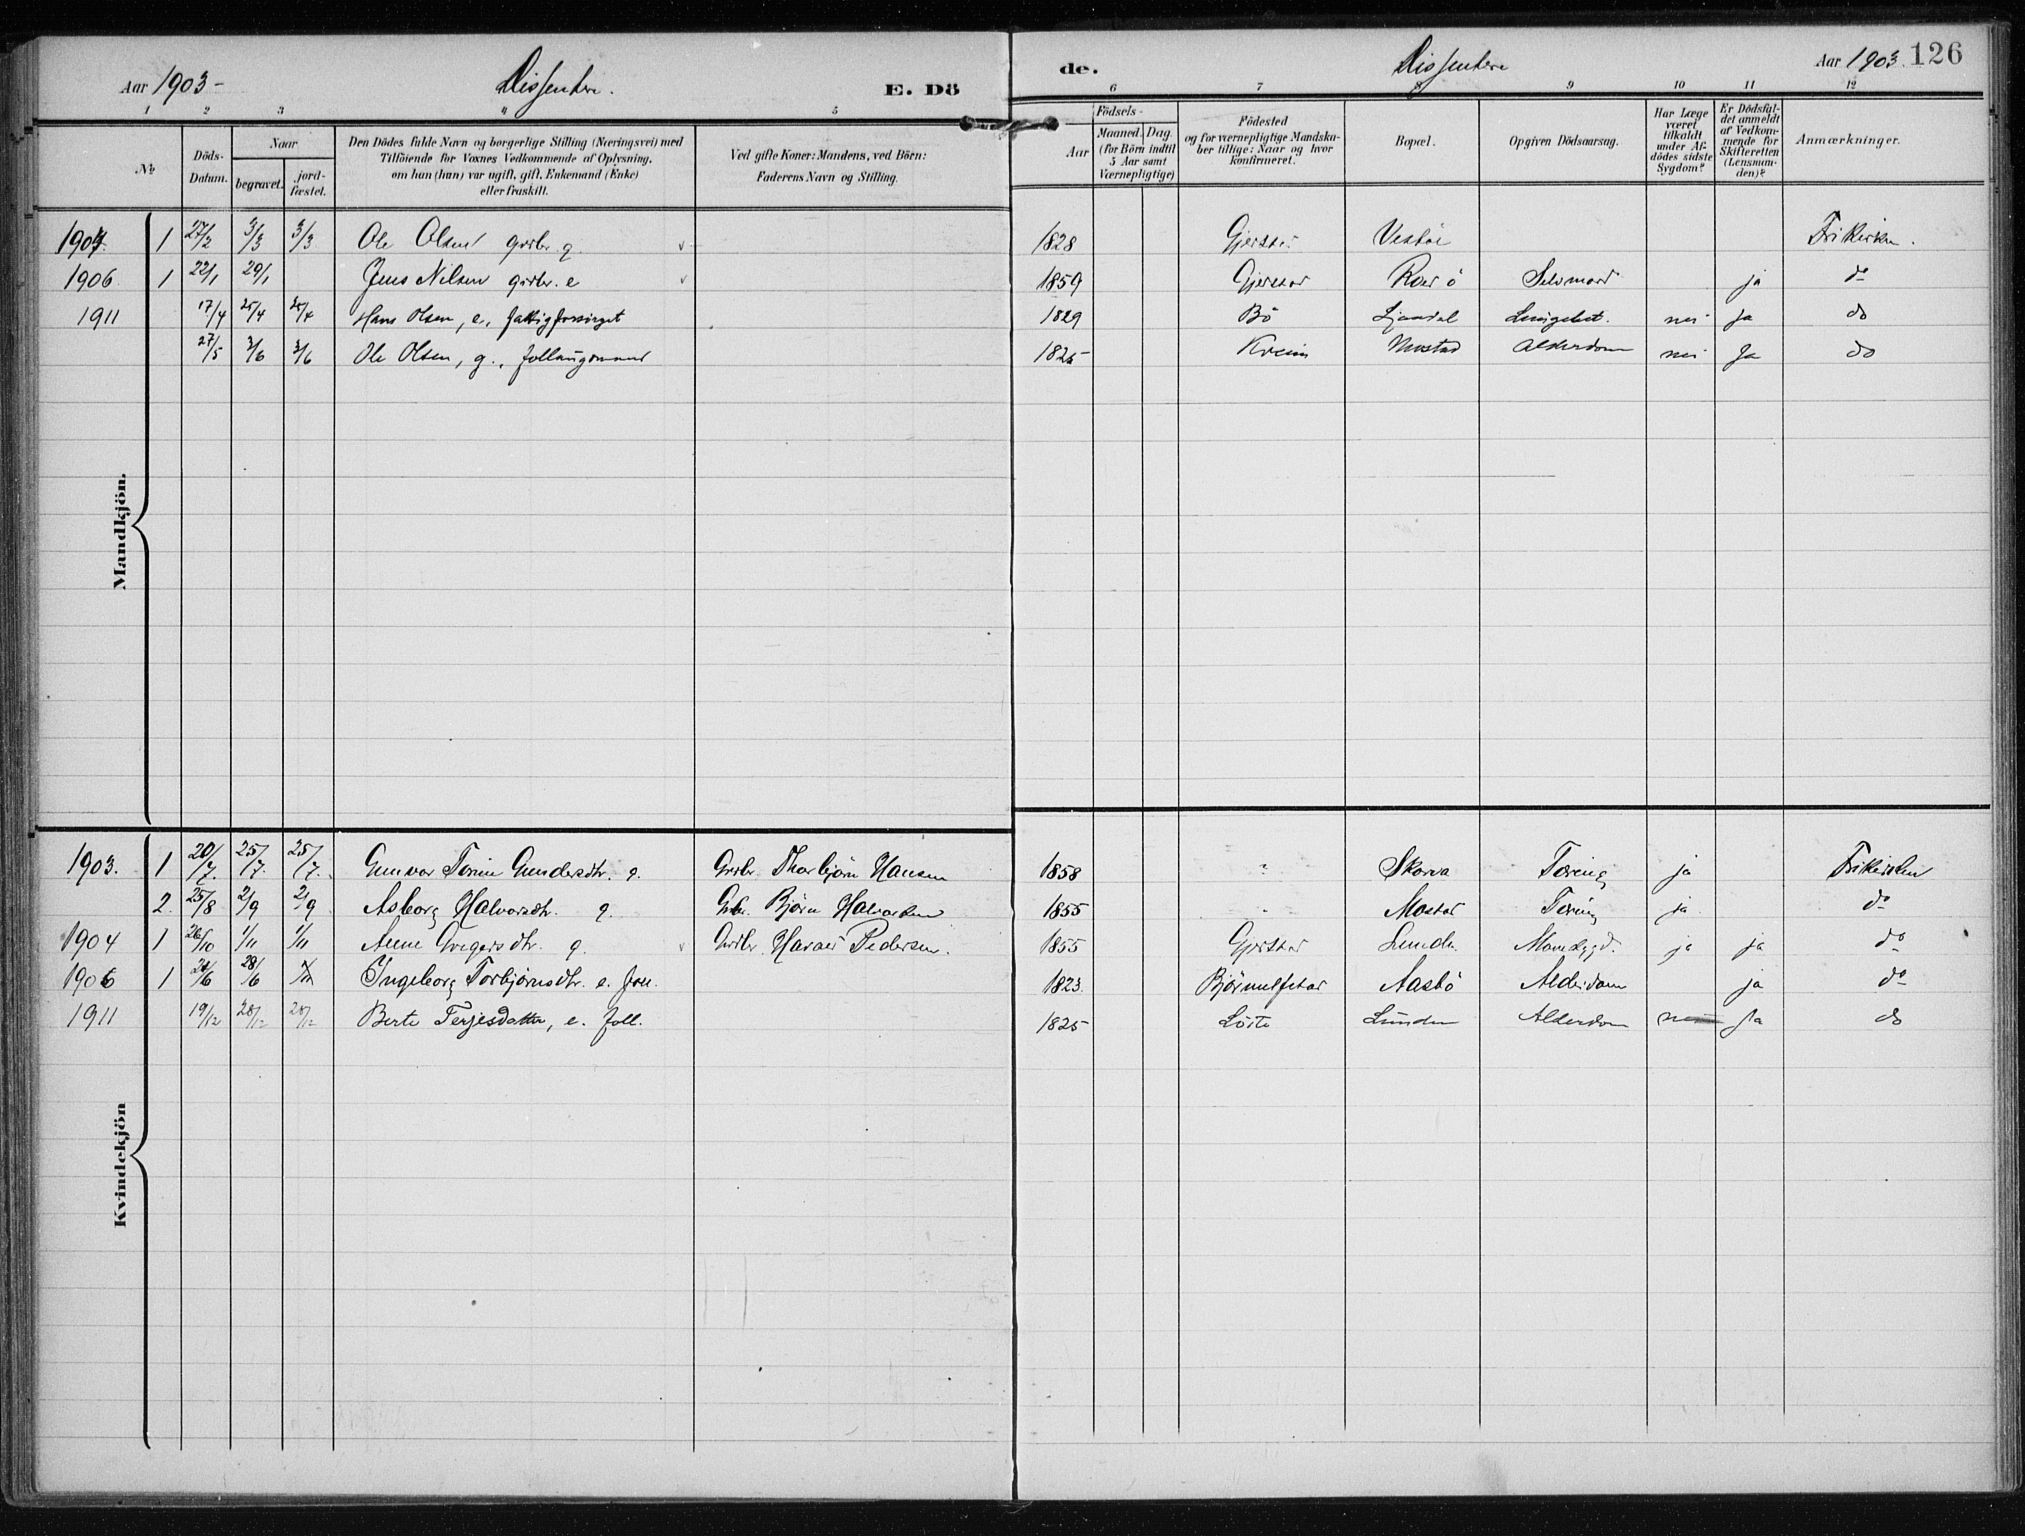 Aar 1903 - Dissentere. E. Dö
de. Dissentere Aar 1903. 126
1 2 3 4 5
6 7 8 9 10 11 12
No.
Döds-Datum.
Naar
begravet.
jord-fæstet.
Den Dödes fulde Navn og borgerlige Stilling (Næringsvei) med
Tilföiende for Voxnes Vedkommende af Oplysning,
om han (hun) var ugift, gift, Enkemand (Enke)
eller fraskilt.
Ved gifte Koner: Mandens, ved Börn:
Faderens Navn og Stilling.
Födsels-
Aar
Maaned. Dag.
(for Börn indtil
5 Aar samt
Værnepligtige)
Födested
og for værnepligtige Mandska-
ber tillige: Naar og hvor
konfirmeret.
Bopæl.
Opgiven Dödsaarsag.
Har Læge
været
tilkaldt
under Af-
dödes sidste
Sygdom?
Er Dödsfal-
det anmeldt
af Vedkom-
mende for
Skifteretten
(Lensman-
den)?
Anmærkninger.
Mandkjön.
1904. 1 27/2 3/3 3/3 Ole Olsen grdbr. g. 1828 Gjerstad Frikirken.
1906. 1 22/1 29/1 Jens Nilsen grdbr. e 1859 Gjerstad Selvmord ja do
1911 17/4 25/4 25/4 Hans Olsen, e., fattigforsörget 1829 Bö Ljosdal nei Ja do
27/5 3/6 3/6 Ole Olsen, g., 1825 Kveim Mostad Alderdom nei Ja do
Kvindekjön
1903. 1 20/7. 25/7. 25/7. Gunvor Tomine Gundersdtr. g. Grdbr. Thorbjörn Hansen 1858 " Skorva Tæring ja Frikirken
2. 25/8 2/9 2/9 Asborg Halvorsdtr. g. Björn Halvorsen 1855 " Mostad Tæring ja do
1904 1 26/10 1/11 1/11 Anne Gregersdtr. g. Grdbr. Pedersen. 1855 Gjerstad Lunden. ja ja do
1906 1 28/6 Ingeborg Torbjörnsdtr. e. 1823. Aasbö Alderdom ja do
1911 19/12 28/12 28/12 Berte Terjesdatter, e. foll. 1825 Lunden Alderdom nei Ja do